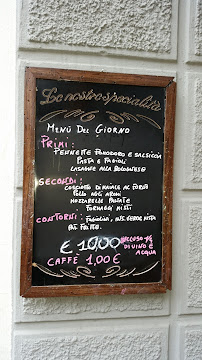 Le nostre specialità
MENÙ DEL GIORNO
PRIMI:
PENNETTE POMODORO E SALSICCIA
PASTA E FAGIOLI
LASAGNE ALLA BOLOGNESE
SECONDI:
COSCIOTTO DI MAIALE AL FORNO
POLLO AGLI AROMI
MOZZARELLA PANATE
FORMAGGI MISTI
CONTORNI: FAGIOLINI, INS. VERDE, MISTA
PAT. FRITTE.
€ 10,00 INCLUSO 1/4 DI VINO E ACQUA
CAFFÈ 1,00 €